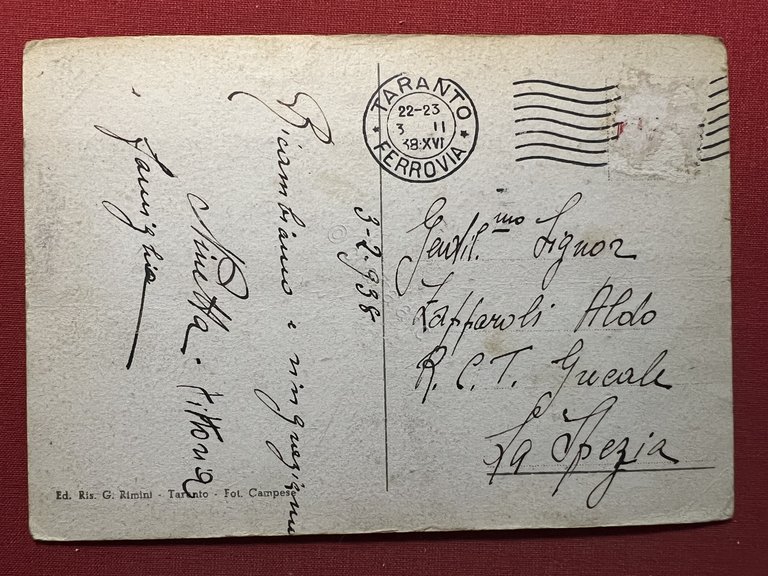 TARANTO
22-23
3 II
38·XVI
FERROVIA
3-2-938
Ricambiamo e ringraziamo
Ninetta - Vittoria
famiglia
Gentil.mo Signor
Zapparoli Aldo
R. C. T. Grecale
La Spezia
Ed. Ris. G. Rimini - Taranto - Fot. Campese